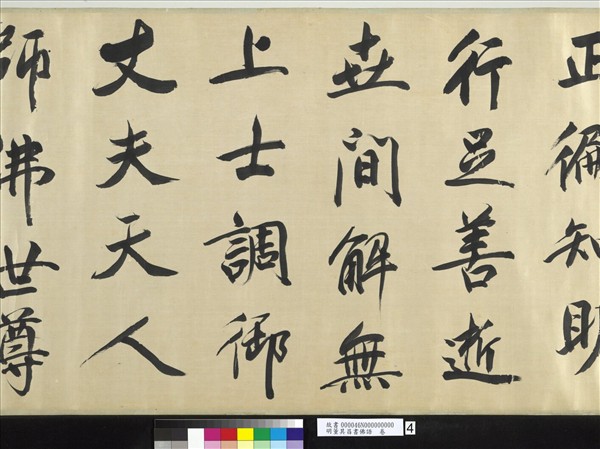 正徧知明
行足善逝
世間解無
上士調御
丈夫天人
師佛世尊
故書000046N000000000
明董其昌書佛語 卷
4